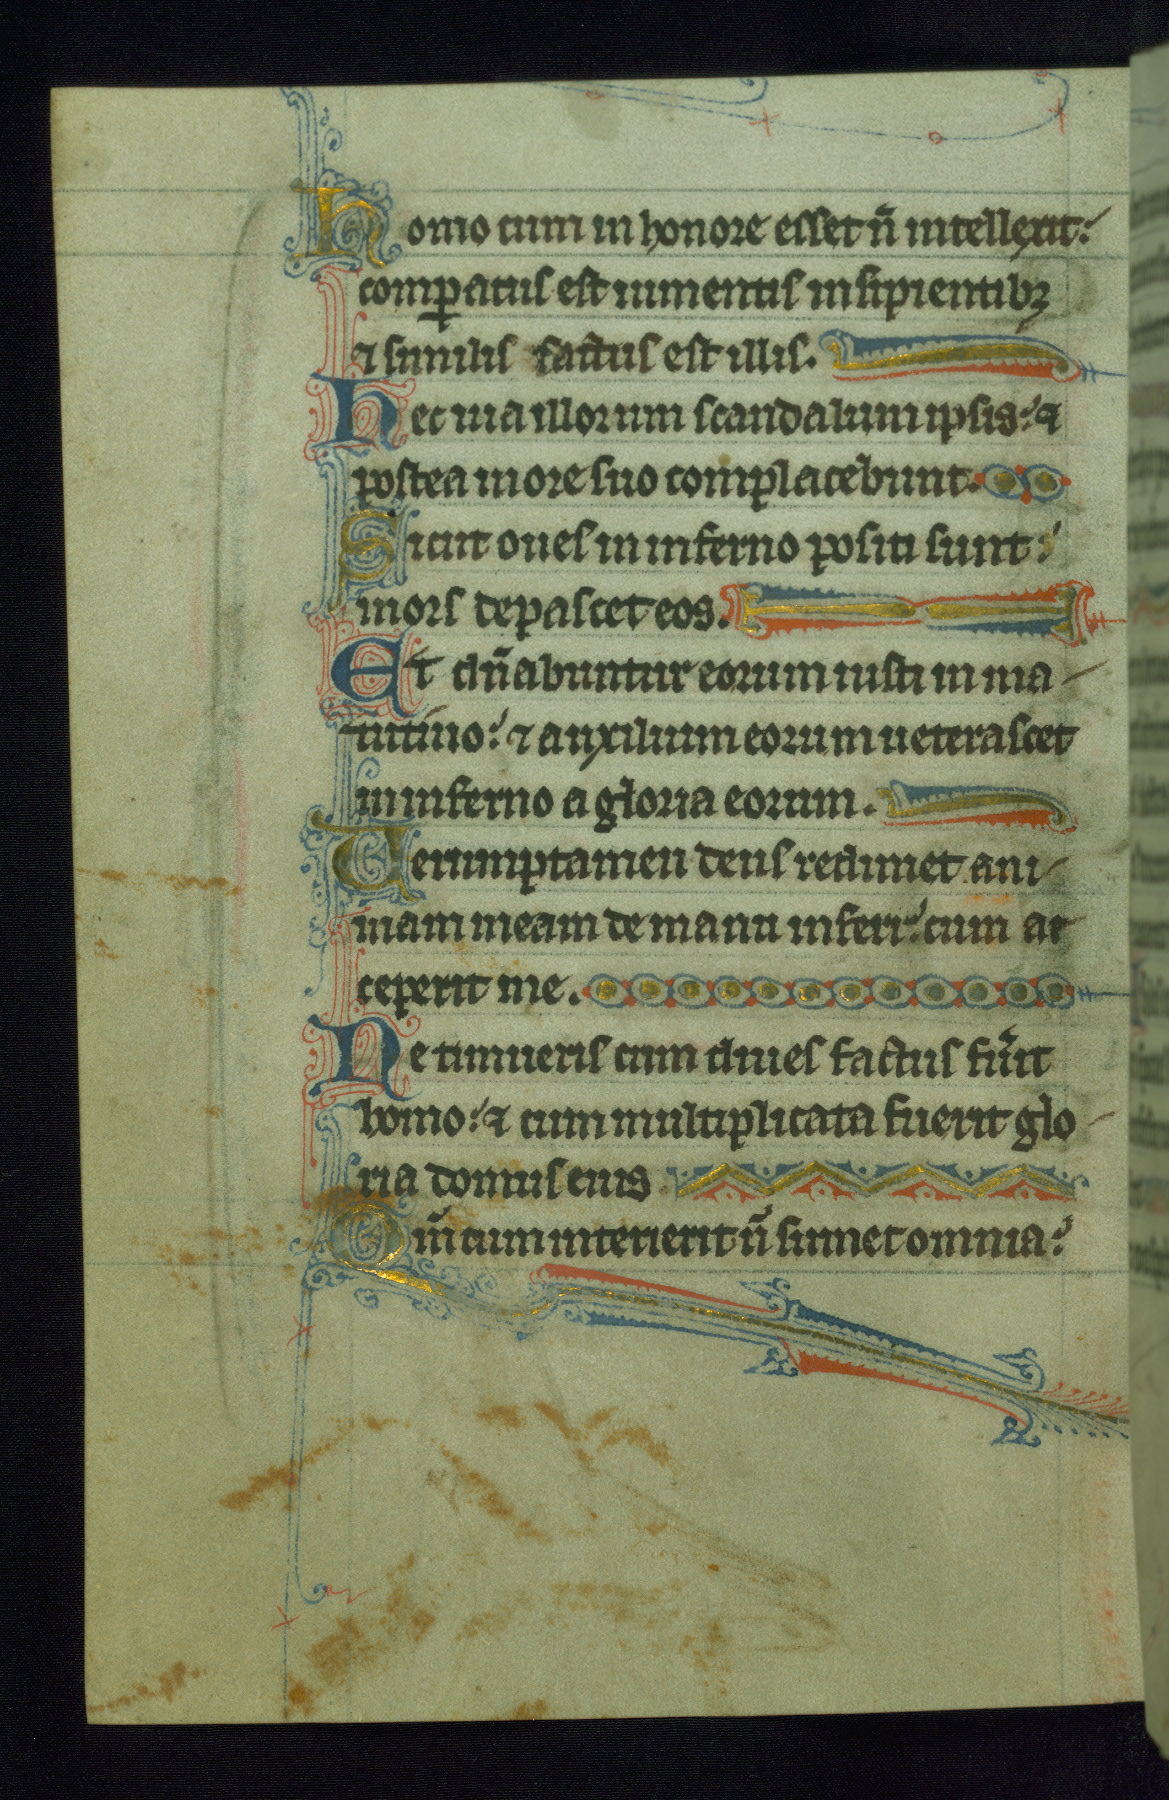 Homo cum in honore esset n̄ intellexit:
comꝑatus est iumentis insipientibꝫ
⁊ similis factus est illis.
Hec uia illorum scandalum ipsis: ⁊
postea in ore suo complacebunt.
Sicut oues in inferno positi sunt:
mors depascet eos.
Et dn̄abuntur eorum iusti in ma
tutino: ⁊ auxilium eorum ueterascet
in inferno a gloria eorum.
Uerumptamen deus redimet ani
mam meam de manu inferi: cum ac
ceperit me.
Ne timueris cum diues factus fu̾it
homo: ⁊ cum multiplicata fuerit glo
ria domus eius
Qm̄ cum interierit n̄ sumet omnia: